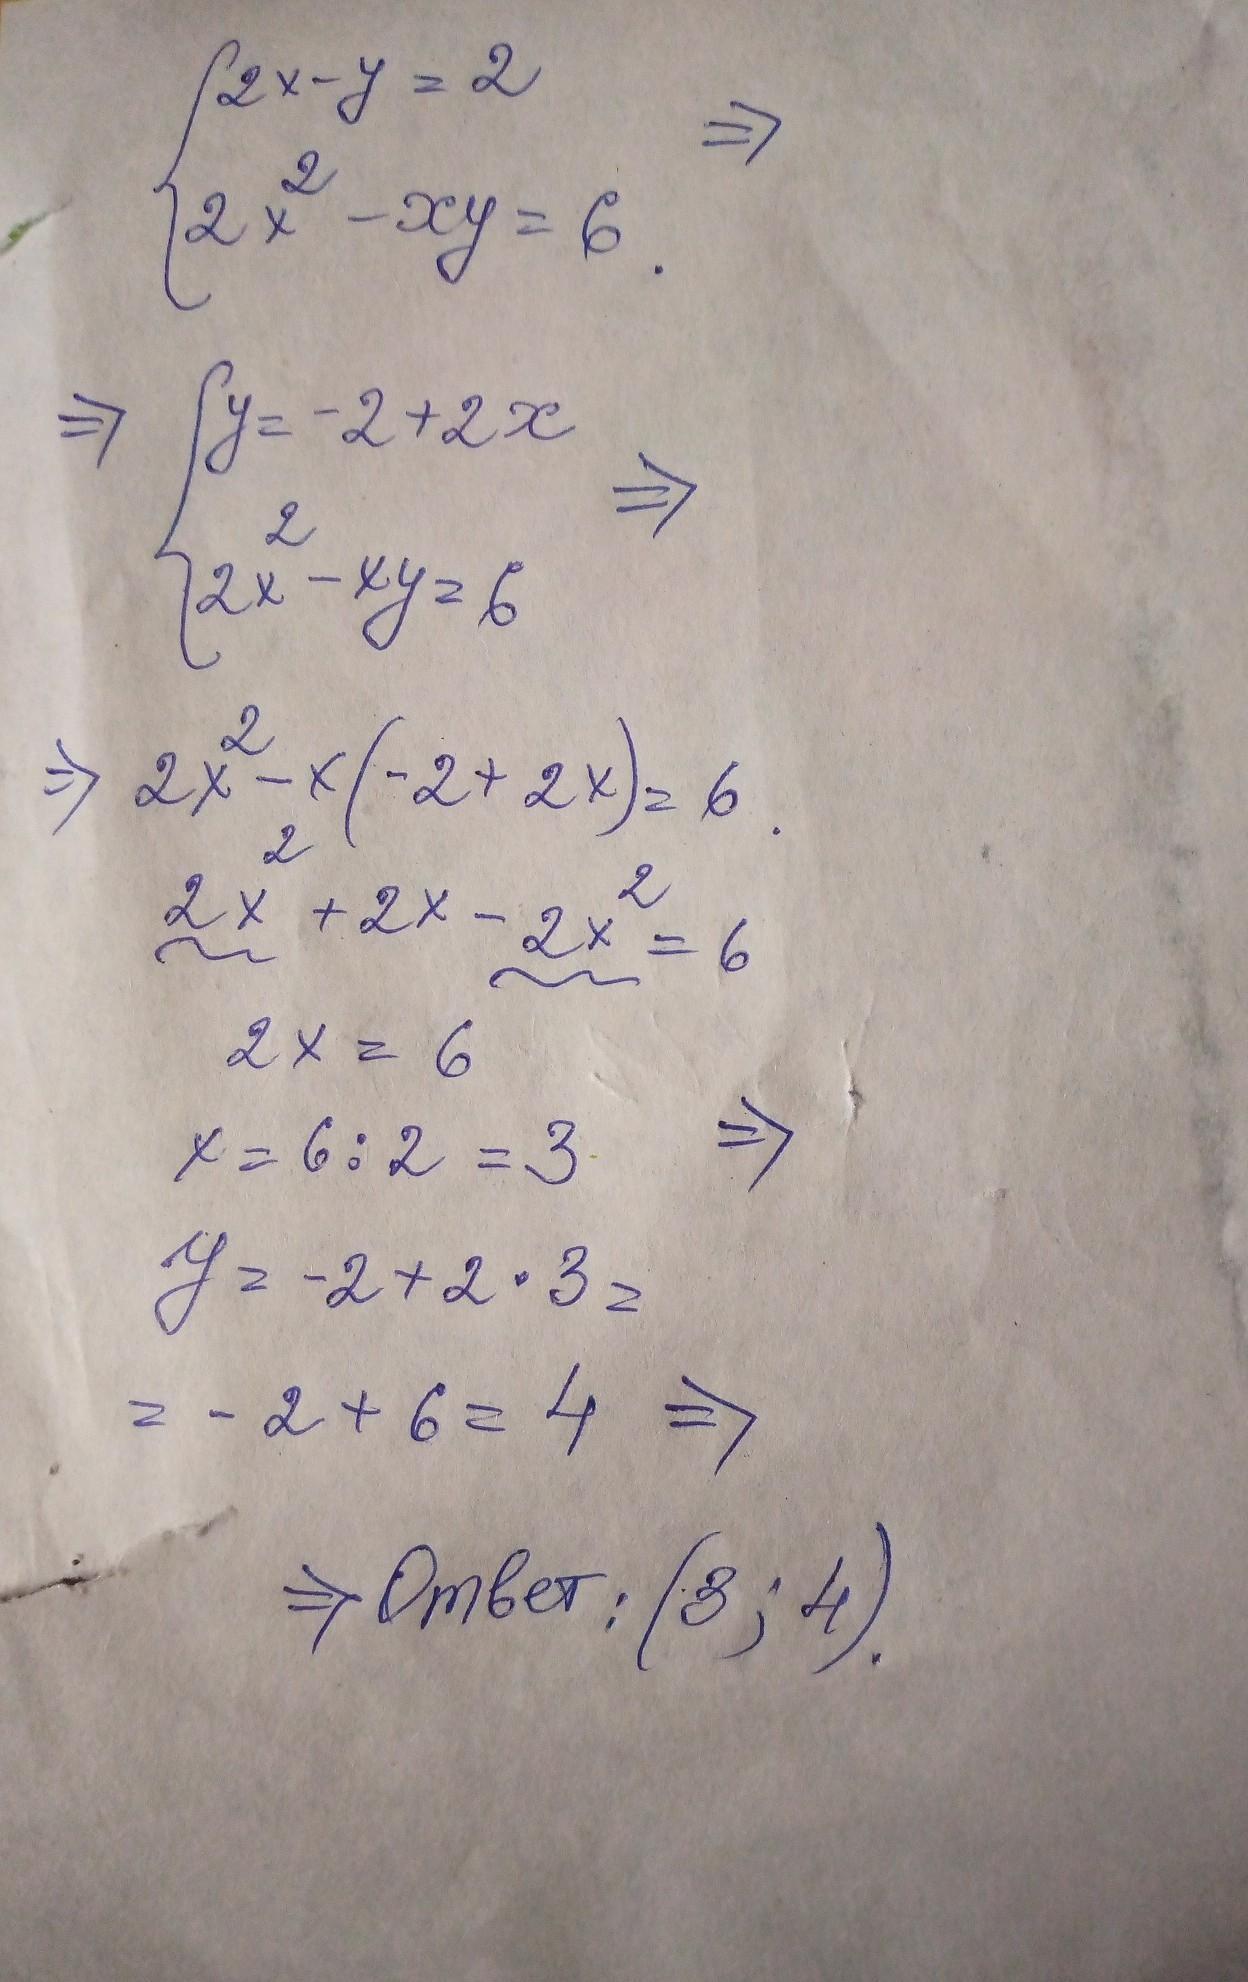 {2x-y = 2
⇒
{2x² - xy = 6.
⇒ {y = -2 + 2x
⇒
{2x² - xy = 6
⇒ 2x² - x(-2 + 2x) = 6.
2x² + 2x - 2x² = 6
2x = 6
x = 6 : 2 = 3 ⇒
y = -2 + 2 · 3 =
= -2 + 6 = 4 ⇒
⇒ Ответ: (3; 4).